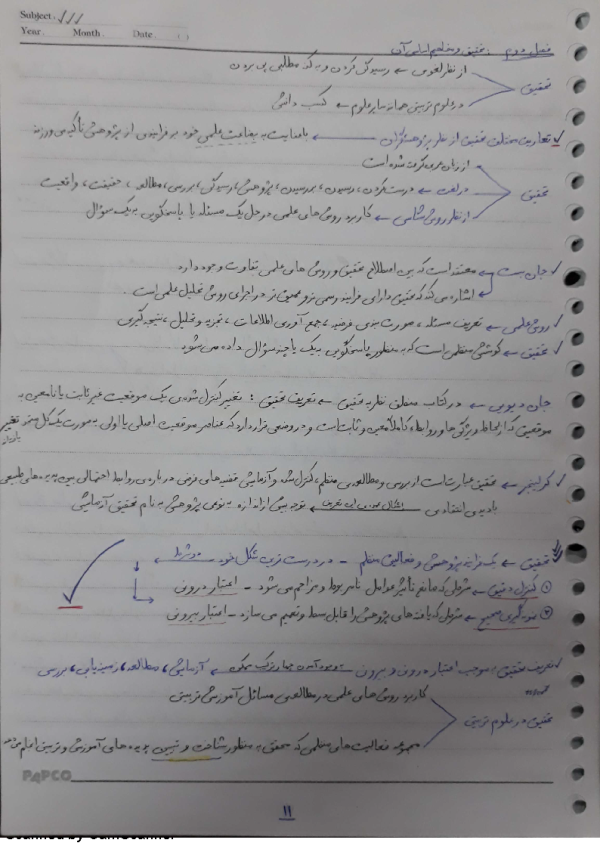 Subject: / / /
Year. Month. Date. ( )
فصل دوم : تحقیق و مفاهیم اساسی آن
از نظر لغوی ← رسیدگی کردن و به کنه مطلبی پی بردن
تحقیق
در علوم تربیتی همانند سایر علوم ← کسب دانش
تعاریف مختلف تحقیق از نظر پژوهشگران ← با عنایت به بضاعت علمی خود به فرایندی از پژوهش تأکید می ورزند
از زبان عربی گرفته شده است
تحقیق
در لغت ← درست کردن، رسیدن، بررسیدن، پژوهش، رسیدگی، بررسی، مطالعه، حقیقت، واقعیت
از نظر روش شناسی ← کاربرد روش های علمی در حل یک مسئله یا پاسخگویی به یک سؤال
جان بست ← معتقد است که بین اصطلاح تحقیق و روش های علمی تفاوت وجود دارد
اشاره می کند که تحقیق دارای فرایند رسمی تر و عمیق تر در اجرای روش تحلیل علمی است.
روش علمی ← تعریف مسئله، صورت بندی فرضیه، جمع آوری اطلاعات، تجزیه و تحلیل، نتیجه گیری
تحقیق ← کوششی منظمی است که به منظور پاسخگویی به یک یا چند سؤال داده می شود
جان دیویی ← در کتاب منطق نظریه تحقیق ← تعریف تحقیق : تغییر کنترل شده ی یک موقعیت غیر ثابت یا نامعین به
موقعیتی که از لحاظ ویژگی ها و روابط کاملاً معین و ثابت است و در وضعی قرار دارد که عناصر موقعیت اصلی یا اولی به صورت یک کل تغییر
کرلینجر ← تحقیق عبارت است از بررسی و مطالعه ی منظم، کنترل شده و آزمایشی قضیه های فرضی درباره ی روابط احتمالی بین پدیده های طبیعی
با دید انتقادی اشکال عمده ی این تعریف ← توجه بیش از اندازه به نوعی پژوهش به نام تحقیق آزمایشی
تحقیق ← یک فرایند پژوهش و فعالیت منظم - در درست ترین شکل خود
① کنترل دقیق ← شرطی که مانع تأثیر عوامل نامربوط و مزاحم می شود - اعتبار درونی
② نمونه گیری صحیح ← شرطی که یافته های پژوهش را قابل بسط و تعمیم می سازد - اعتبار بیرونی
تعریف تحقیق : موجب اعتبار درونی و بیرونی ← آزمایش، مطالعه، زمینه یابی، بررسی
کاربرد روش های علمی در مطالعه ی مسائل آموزشی تربیتی
تحقیق در علوم تربیتی
مجموعه فعالیت های منظمی که محقق به منظور شناخت و تبیین پدیده های آموزشی و تربیتی انجام می دهد
PAPCO
11
Scanned by CamScanner